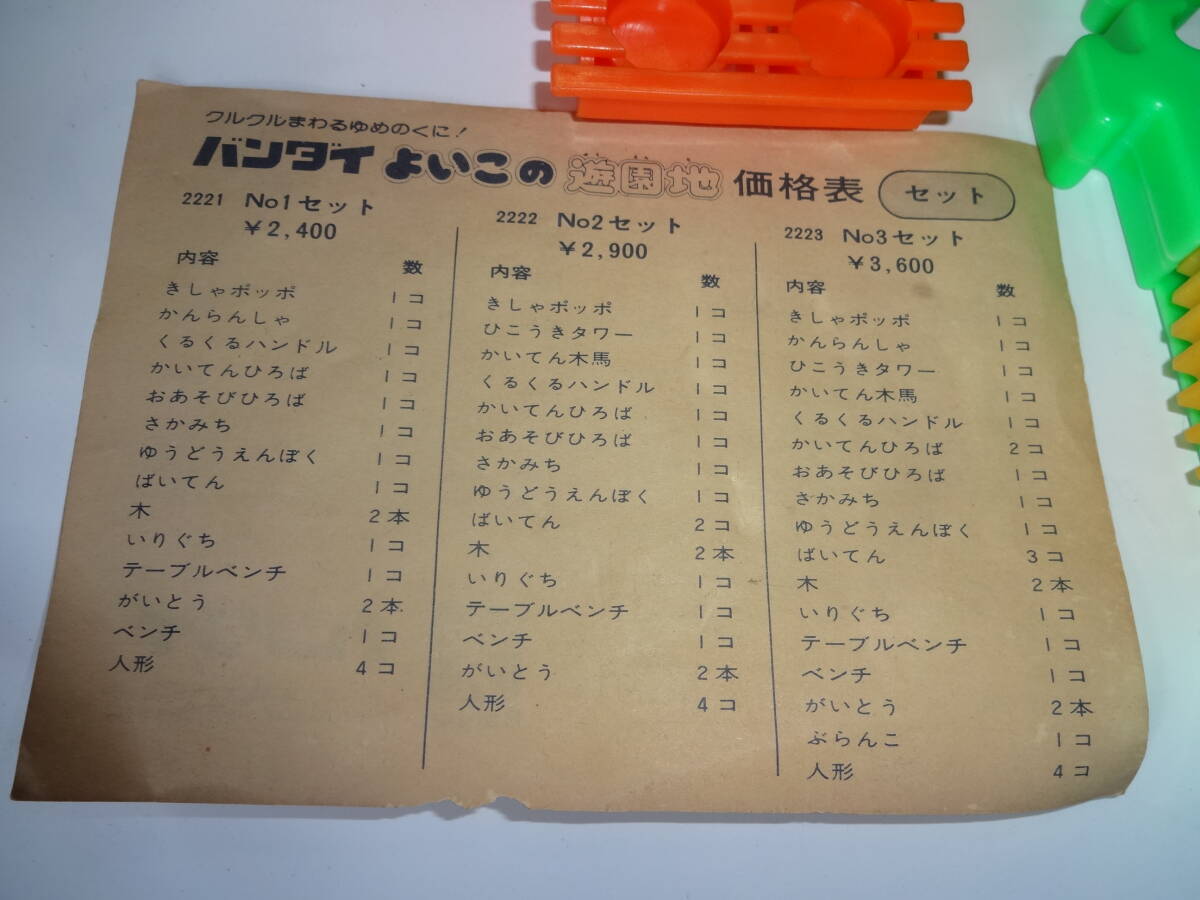 クルクルまわるゆめのくに!
バンダイ よいこの 遊園地 価格表 セット
2221 No1セット
¥2,400
内容 数
きしゃポッポ 1コ
かんらんしゃ 1コ
くるくるハンドル 1コ
かいてんひろば 1コ
おあそびひろば 1コ
さかみち 1コ
ゆうどうえんぼく 1コ
ばいてん 1コ
木 2本
いりぐち 1コ
テーブルベンチ 1コ
がいとう 2本
ベンチ 1コ
人形 4コ
2222 No2セット
¥2,900
内容 数
きしゃポッポ 1コ
ひこうきタワー 1コ
かいてん木馬 1コ
くるくるハンドル 1コ
かいてんひろば 1コ
おあそびひろば 1コ
さかみち 1コ
ゆうどうえんぼく 1コ
ばいてん 2コ
木 2本
いりぐち 1コ
テーブルベンチ 1コ
ベンチ 1コ
がいとう 2本
人形 4コ
2223 No3セット
¥3,600
内容 数
きしゃポッポ 1コ
かんらんしゃ 1コ
ひこうきタワー 1コ
かいてん木馬 1コ
くるくるハンドル 1コ
かいてんひろば 2コ
おあそびひろば 1コ
さかみち 1コ
ゆうどうえんぼく 1コ
ばいてん 3コ
木 2本
いりぐち 1コ
テーブルベンチ 1コ
ベンチ 1コ
がいとう 2本
ぶらんこ 1コ
人形 4コ